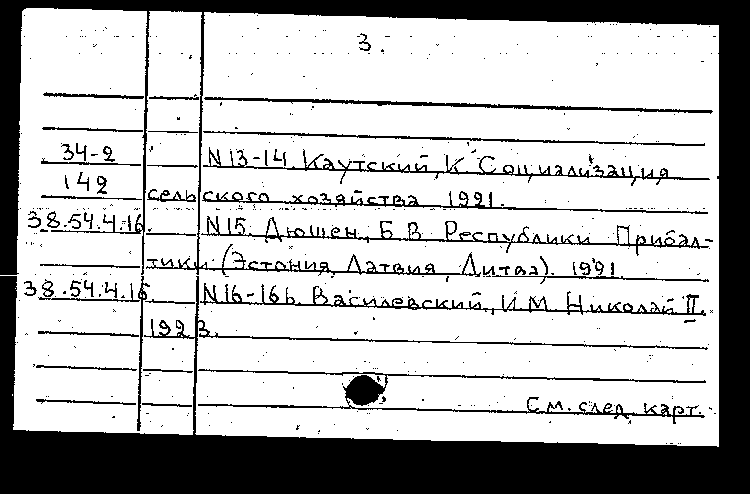 3.
34-2 N13-14. Каутский, К. Социализация
142 сельского хозяйства 1921.
38.54.4.16. N15. Дюшен, Б.В. Республики Прибал-
тики (Эстония, Латвия, Литва). 1921.
38.54.4.15. N16-16б. Василевский, И.М. Николай II.
1923.
См. след. карт.